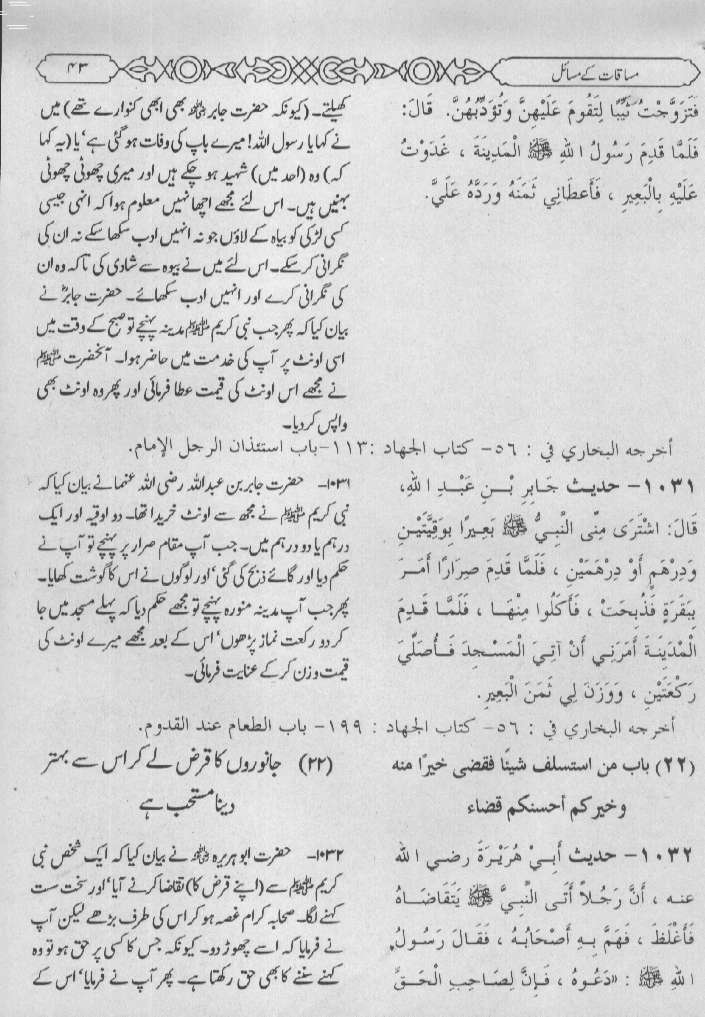 مساقات کے مسائل
۴۳
فَتَزَوَّجْتُ ثَيِّبًا لِتَقُومَ عَلَيْهِنَّ وَتُؤَدِّبَهُنَّ. قَالَ:
فَلَمَّا قَدِمَ رَسُولُ اللهِ ﷺ الْمَدِينَةَ ، غَدَوْتُ
عَلَيْهِ بِالْبَعِيرِ ، فَأَعْطَانِي ثَمَنَهُ وَرَدَّهُ عَلَيَّ.
کھیلتے۔ (کیونکہ حضرت جابر ؓ بھی ابھی کنوارے تھے) میں
نے کہا یا رسول اللہ! میرے باپ کی وفات ہو گئی ہے‘ یا (یہ کہا
کہ) وہ (احد میں) شہید ہو چکے ہیں اور میری چھوٹی چھوٹی
بہنیں ہیں۔ اس لئے مجھے اچھا نہیں معلوم ہوا کہ انہی جیسی
کسی لڑکی کو بیاہ کے لاؤں جو نہ انہیں ادب سکھا سکے نہ ان کی
نگرانی کر سکے۔ اس لئے میں نے بیوہ سے شادی کی تاکہ وہ ان
کی نگرانی کرے اور انہیں ادب سکھائے۔ حضرت جابرؓ نے
بیان کیا کہ پھر جب نبی کریم ﷺ مدینہ پہنچے تو صبح کے وقت میں
اسی اونٹ پر آپ کی خدمت میں حاضر ہوا۔ آنحضرت ﷺ
نے مجھے اس اونٹ کی قیمت عطا فرمائی اور پھر وہ اونٹ بھی
واپس کر دیا۔
أخرجه البخاري في : ٥٦- كتاب الجهاد : ١١٣-باب استئذان الرجل الإمام.
١٠٣١- حديث جَابِرِ بْنِ عَبْدِ اللهِ،
قَالَ: اشْتَرَى مِنِّى النَّبِيُّ ﷺ بَعِيرًا بِوَقِيَّتَيْنِ
وَدِرْهَمٍ أَوْ دِرْهَمَيْنِ ، فَلَمَّا قَدِمَ صِرَارًا أَمَرَ
بِبَقَرَةٍ فَذُبِحَتْ ، فَأَكَلُوا مِنْهَا ، فَلَمَّا قَدِمَ
الْمَدِينَةَ أَمَرَنِي أَنْ آتِيَ الْمَسْجِدَ فَأُصَلِّيَ
رَكْعَتَيْنِ ، وَوَزَنَ لِي ثَمَنَ الْبَعِيرِ.
۱۰۳۱- حضرت جابر بن عبداللہ رضی اللہ عنہما نے بیان کیا کہ
نبی کریم ﷺ نے مجھ سے اونٹ خریدا تھا۔ دو اوقیہ اور ایک
درہم یا دو درہم میں۔ جب آپ مقام صرار پر پہنچے تو آپ نے
حکم دیا اور گائے ذبح کی گئی‘ اور لوگوں نے اس کا گوشت کھایا۔
پھر جب آپ مدینہ منورہ پہنچے تو مجھے حکم دیا کہ پہلے مسجد میں جا
کر دو رکعت نماز پڑھوں‘ اس کے بعد مجھے میرے اونٹ کی
قیمت وزن کر کے عنایت فرمائی۔
أخرجه البخاري في : ٥٦- كتاب الجهاد : ١٩٩- باب الطعام عند القدوم.
(٢٢) باب من استسلف شيئا فقضى خيرًا منه
وخيركم أحسنكم قضاء
(۲۲) جانوروں کا قرض لے کر اس سے بہتر
دینا مستحب ہے
١٠٣٢- حديث أَبِيْ هُرَيْرَةَ رضي الله
عنه ، أَنَّ رَجُلاً أَتَى النَّبِيَّ ﷺ يَتَقَاضَاهُ
فَأَغْلَظَ ، فَهَمَّ بِهِ أَصْحَابُهُ ، فَقَالَ رَسُولُ
اللهِ ﷺ : «دَعُوهُ ، فَإِنَّ لِصَاحِبِ الْحَقِّ
۱۰۳۲- حضرت ابو ہریرہ ؓ نے بیان کیا کہ ایک شخص نبی
کریم ﷺ سے (اپنے قرض کا) تقاضا کرنے آیا‘ اور سخت ست
کہنے لگا۔ صحابہ کرام غصہ ہو کر اس کی طرف بڑھے لیکن آپ
نے فرمایا کہ اسے چھوڑ دو۔ کیونکہ جس کا کسی پر حق ہو تو وہ
کہنے سننے کا بھی حق رکھتا ہے۔ پھر آپ نے فرمایا‘ اس کے